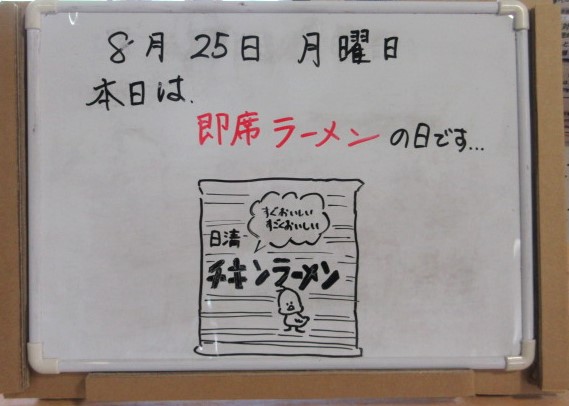 8月25日 月曜日
本日は、
即席ラーメンの日です…
すぐおいしい
すごくおいしい
日清
チキンラーメン